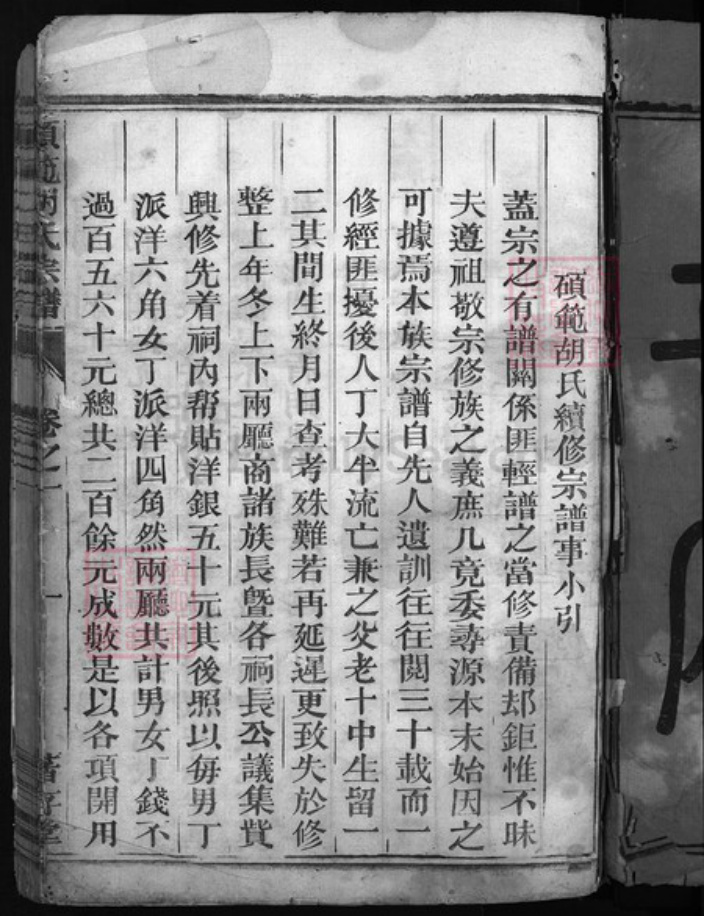 碩範胡氏續修宗譜事小引
蓋宗之有譜關係匪輕譜之當修責備却鉅惟不昧
夫遵祖敬宗修族之義庶几竟委尋源本末始因之
可據焉本族宗譜自先人遺訓往往閱三十載而一
修經匪擾後人丁大半流亡兼之父老十中生留一
二其間生終月日查考殊難若再延遲更致失於修
整上年冬上下兩廳商諸族長暨各祠長公議集貲
興修先着祠內帮貼洋銀五十元其後照以每男丁
派洋六角女丁派洋四角然兩廳共計男女丁錢不
過百五六十元總共二百餘元成數是以各項開用
碩範胡氏宗譜 卷之一 一